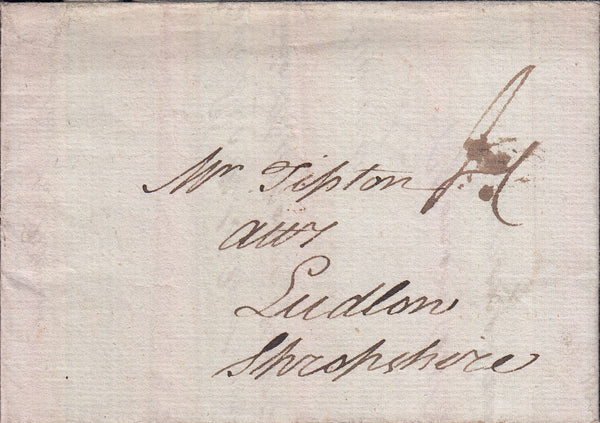 Mr Tipton
Atty
Ludlow
Shropshire